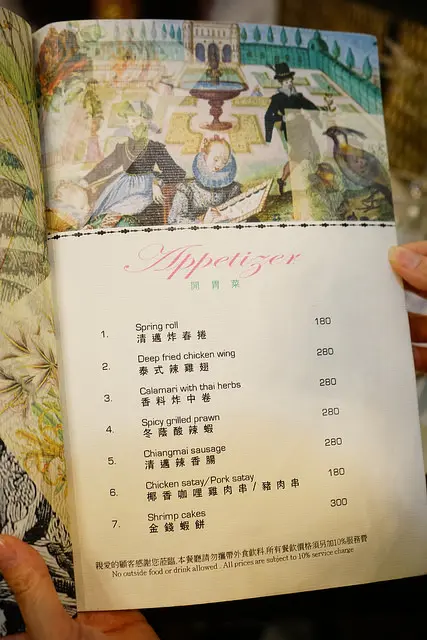 Appetizer
開胃菜
1. Spring roll 180
清邁炸春捲
2. Deep fried chicken wing 280
泰式辣雞翅
3. Calamari with thai herbs 280
香料炸中卷
4. Spicy grilled prawn 280
冬蔭酸辣蝦
5. Chiangmai sausage 280
清邁辣香腸
6. Chicken satay/Pork satay 180
椰香咖哩雞肉串/豬肉串
7. Shrimp cakes 300
金錢蝦餅
親愛的顧客感謝您蒞臨,本餐廳請勿攜帶外食飲料,所有餐飲價格須另加10%服務費
No outside food or drink allowed . All prices are subject to 10% service charge